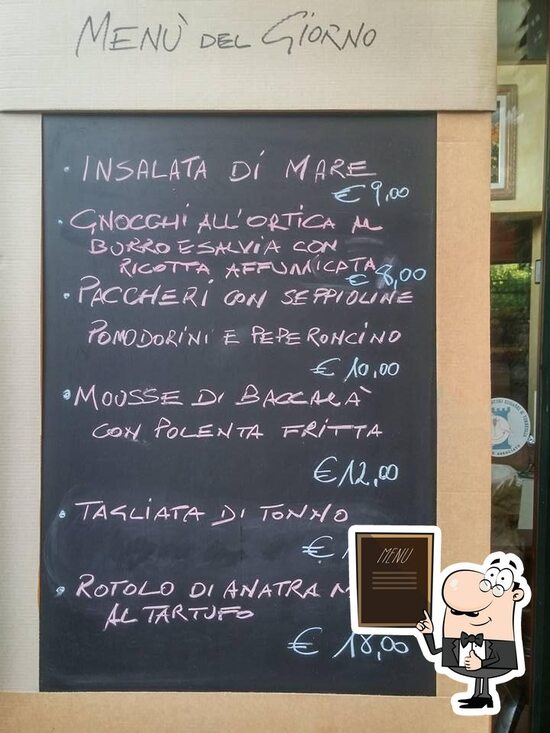 MENÙ DEL GIORNO
• INSALATA DI MARE
€ 9,00
• GNOCCHI ALL'ORTICA AL
BURRO E SALVIA CON
RICOTTA AFFUMICATA
€ 8,00
• PACCHERI CON SEPPIOLINE
POMODORINI E PEPERONCINO
€ 10,00
• MOUSSE DI BACCALÀ
CON POLENTA FRITTA
€ 12,00
• TAGLIATA DI TONNO
€ 1
MENU
• ROTOLO DI ANATRA
AL TARTUFO
€ 18,00